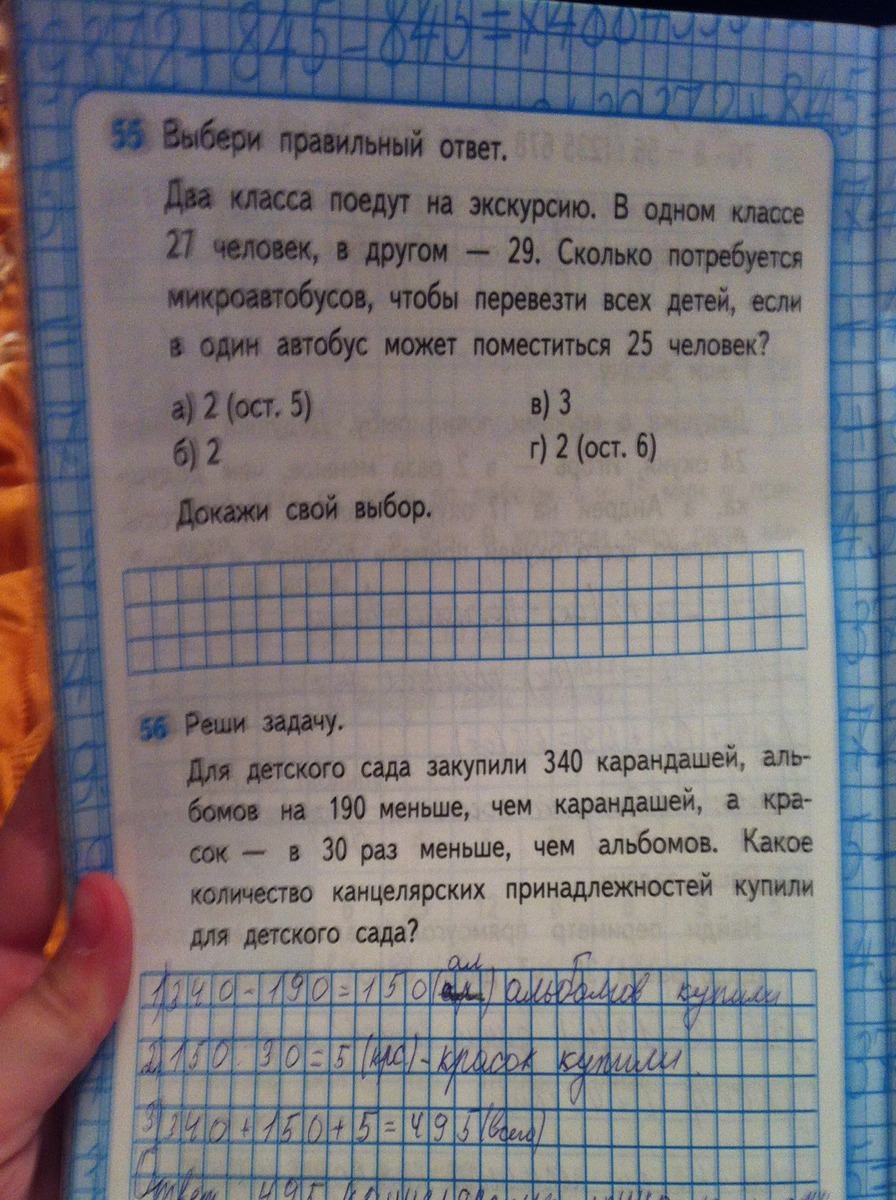 372+845-845=
55 Выбери правильный ответ.
Два класса поедут на экскурсию. В одном классе
27 человек, в другом — 29. Сколько потребуется
микроавтобусов, чтобы перевезти всех детей, если
в один автобус может поместиться 25 человек?
а) 2 (ост. 5)
в) 3
б) 2
г) 2 (ост. 6)
Докажи свой выбор.
56 Реши задачу.
Для детского сада закупили 340 карандашей, аль-
бомов на 190 меньше, чем карандашей, а кра-
сок — в 30 раз меньше, чем альбомов. Какое
количество канцелярских принадлежностей купили
для детского сада?
ал
1) 340-190=150( ) альбомов купили
2) 150:30=5 (крс)-красок купили.
3) 340+150+5=495(всего)
Ответ 495